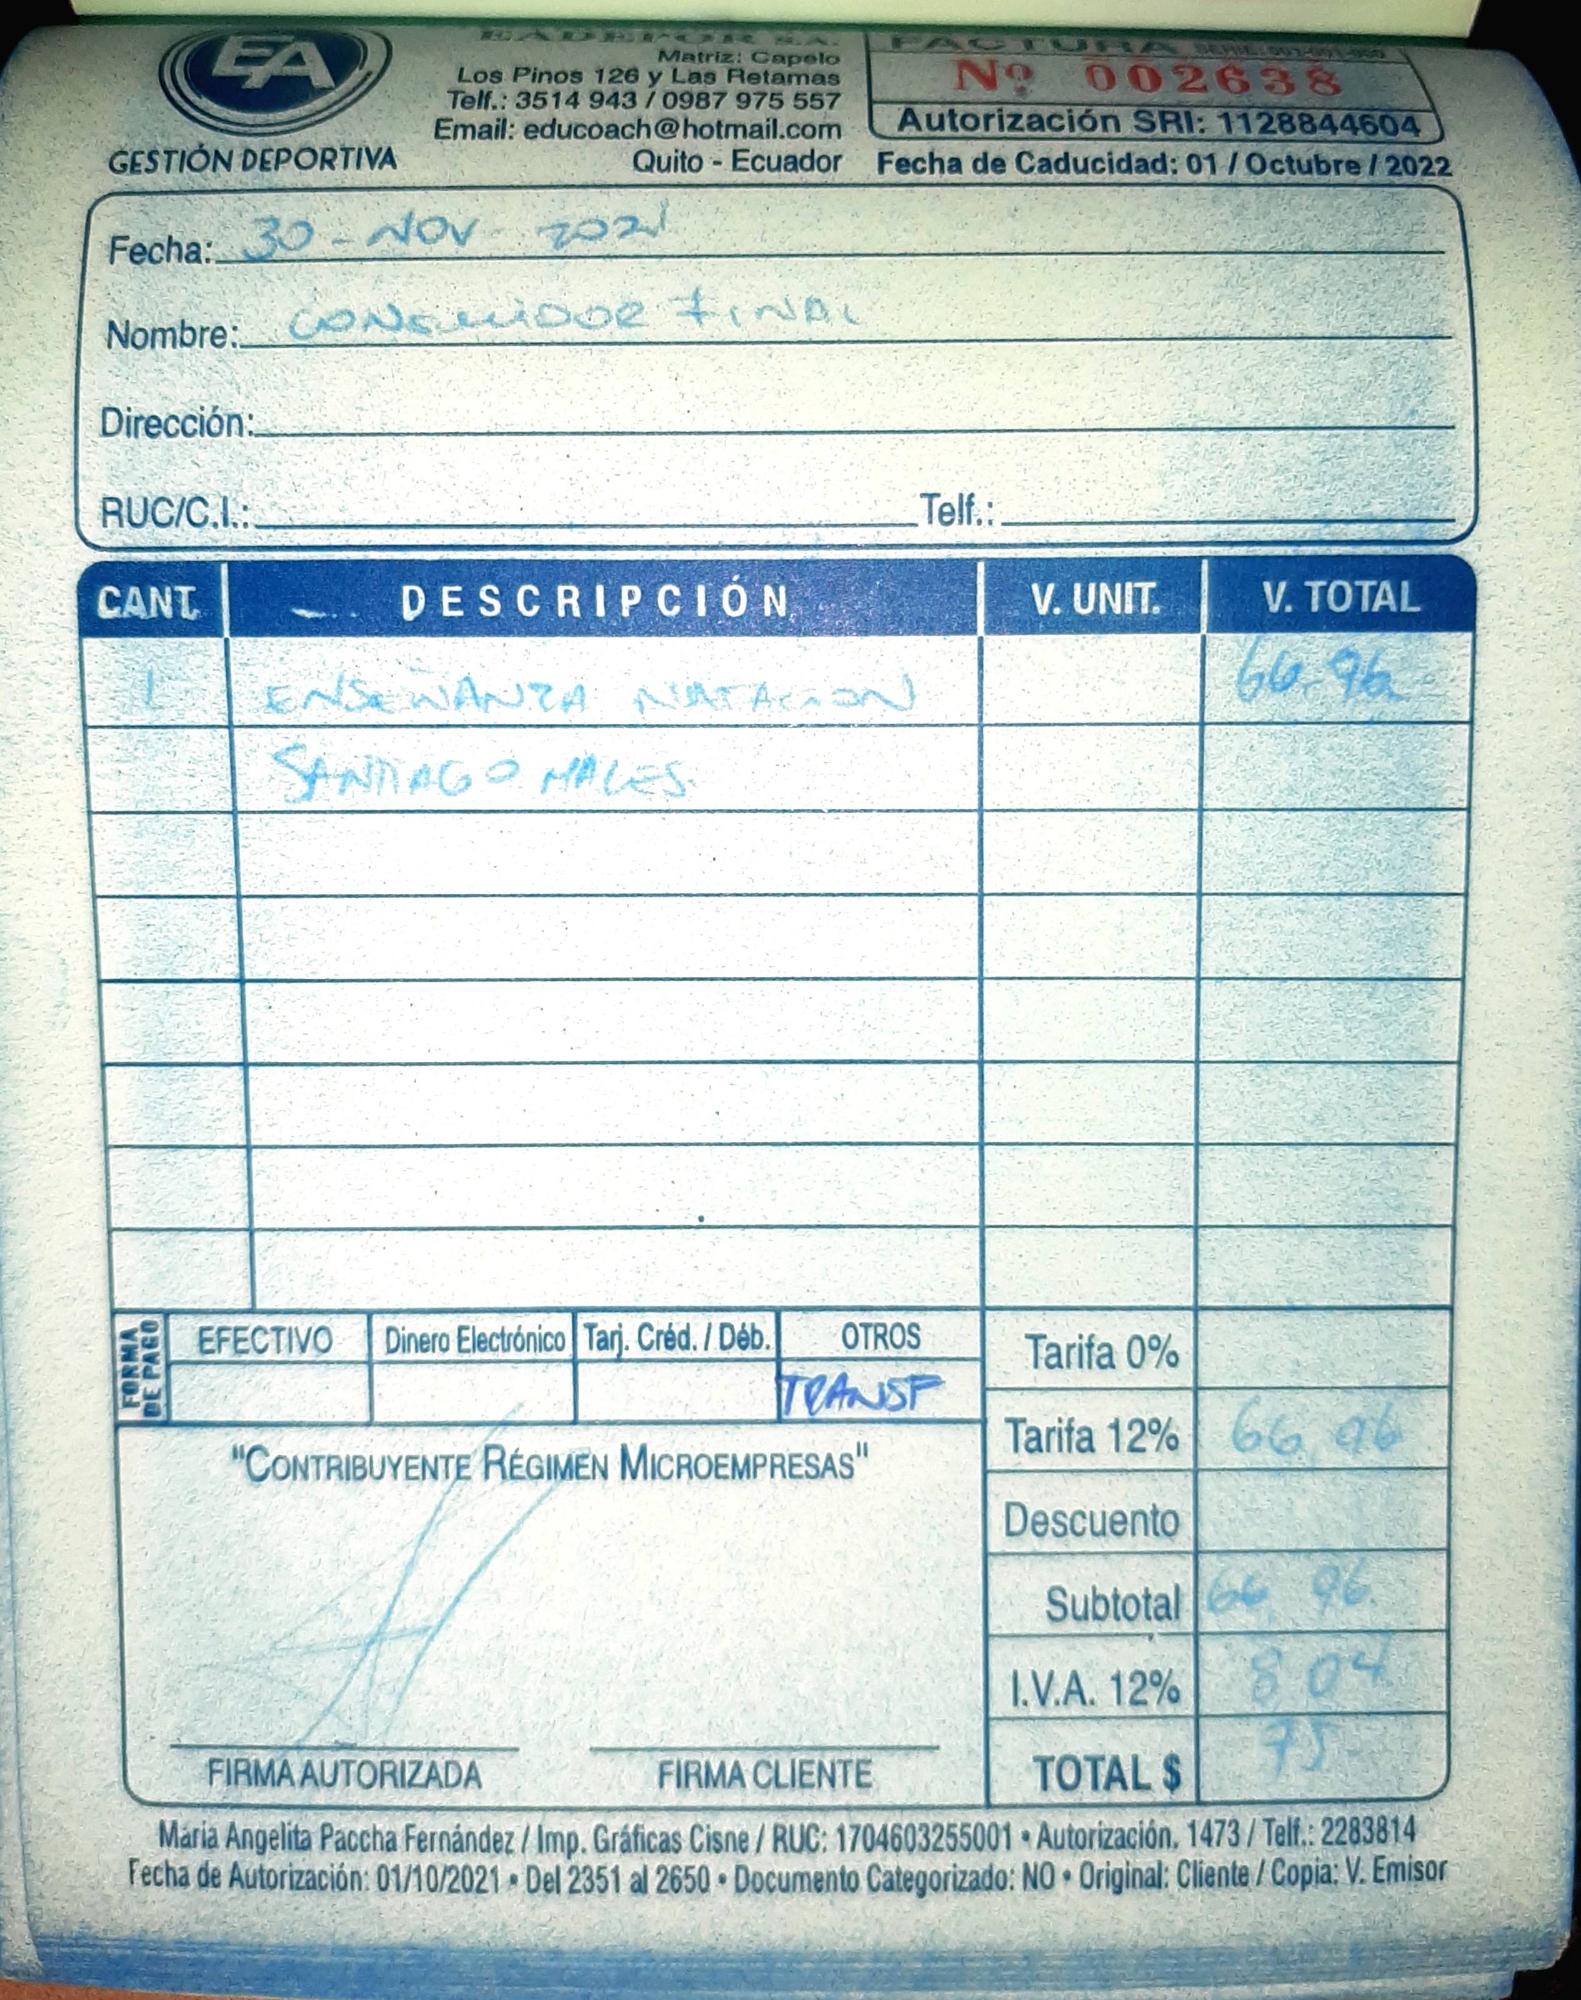 EA
GESTIÓN DEPORTIVA
EADEPOR S.A.
Matriz: Capelo
Los Pinos 126 y Las Retamas
Telf.: 3514 943 / 0987 975 557
Email: educoach@hotmail.com
Quito - Ecuador
FACTURA
Nº 002638
Autorización SRI: 1128844604
Fecha de Caducidad: 01 / Octubre / 2022
Fecha: 30 - NOV 2021
Nombre: CONSUMIDOR FINAL
Dirección:
RUC/C.I.: Telf.:
CANT. DESCRIPCIÓN V. UNIT. V. TOTAL
1 ENSEÑANZA NATACION 66.96
SANTIAGO MALES.
FORMA DE PAGO
EFECTIVO Dinero Electrónico Tarj. Créd. / Déb. OTROS
TRANSF
"CONTRIBUYENTE RÉGIMEN MICROEMPRESAS"
Tarifa 0%
Tarifa 12% 66 96
Descuento
Subtotal 66 96
I.V.A. 12% 8 04
TOTAL $ 75
FIRMA AUTORIZADA FIRMA CLIENTE
María Angelita Paccha Fernández / Imp. Gráficas Cisne / RUC: 1704603255001 • Autorización. 1473 / Telf.: 2283814
Fecha de Autorización: 01/10/2021 • Del 2351 al 2650 • Documento Categorizado: NO • Original: Cliente / Copia: V. Emisor